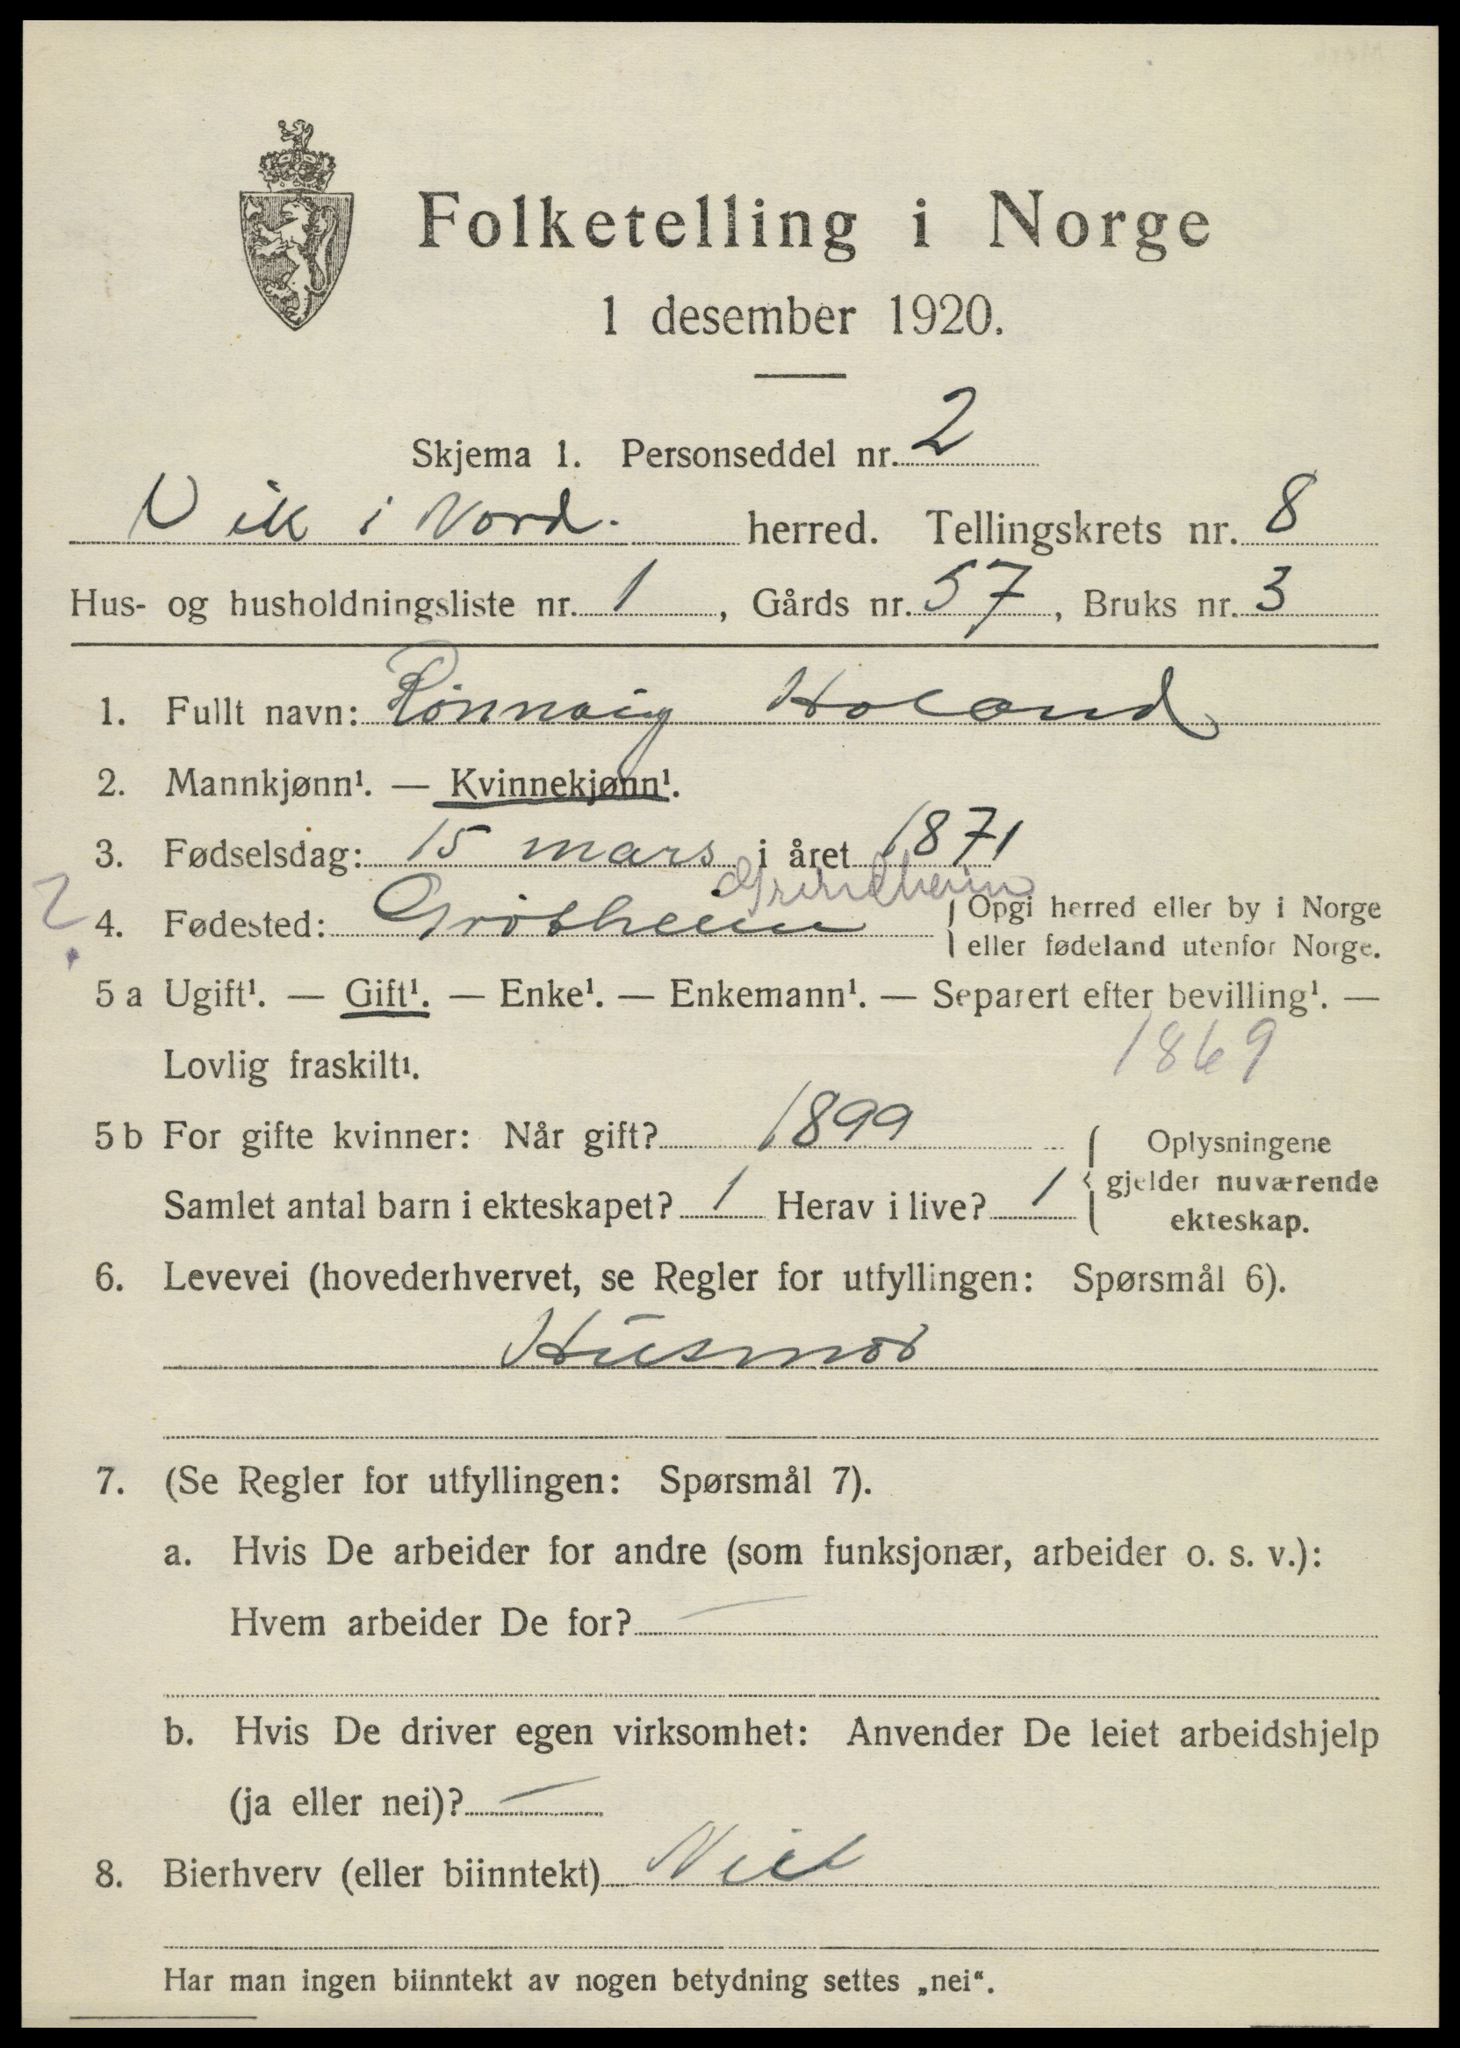 Folketelling i Norge
1 desember 1920.
Skjema 1. Personseddel nr. 2
Vik i Nord. herred. Tellingskrets nr. 8
Hus- og husholdningsliste nr. 1, Gårds nr. 57, Bruks nr. 3
1. Fullt navn: Rönnaug Holand
2. Mannkjønn¹. — Kvinnekjønn¹.
3. Fødselsdag: 15 mars i året 1871
Grindheim
? 4. Fødested: Grötheim { Opgi herred eller by i Norge
eller fødeland utenfor Norge.
5 a Ugift¹. — Gift¹. — Enke¹. — Enkemann¹. — Separert efter bevilling¹. —
Lovlig fraskilt¹. 1869
5 b For gifte kvinner: Når gift? 1899 { Oplysningene
gjelder nuværende
Samlet antal barn i ekteskapet? 1 Herav i live? 1 ekteskap.
6. Levevei (hovederhvervet, se Regler for utfyllingen: Spørsmål 6).
Husmor
7. (Se Regler for utfyllingen: Spørsmål 7).
a. Hvis De arbeider for andre (som funksjonær, arbeider o. s. v.):
Hvem arbeider De for? —
b. Hvis De driver egen virksomhet: Anvender De leiet arbeidshjelp
(ja eller nei)? —
8. Bierhverv (eller biinntekt) Nei
Har man ingen biinntekt av nogen betydning settes „nei“.